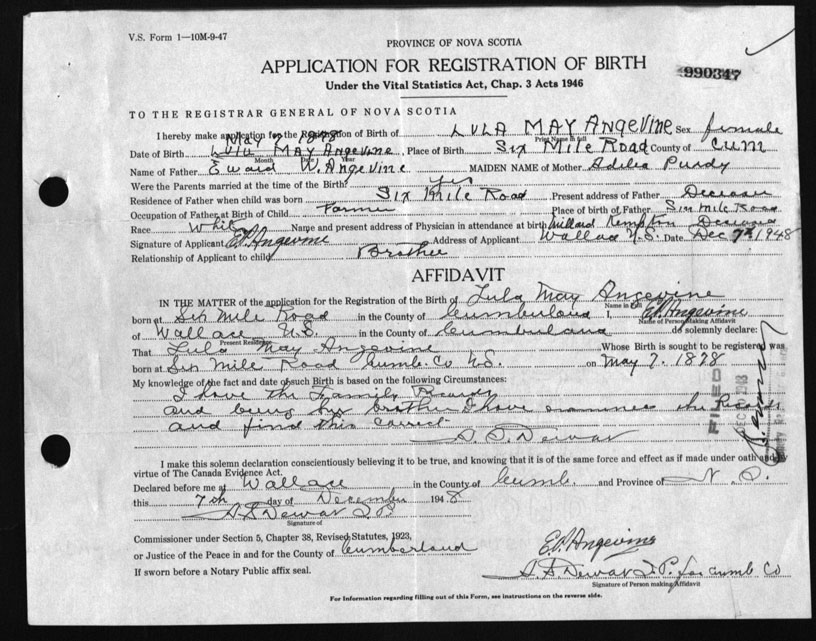 V.S. Form 1—10M-9-47
PROVINCE OF NOVA SCOTIA
APPLICATION FOR REGISTRATION OF BIRTH
990347
Under the Vital Statistics Act, Chap. 3 Acts 1946
TO THE REGISTRAR GENERAL OF NOVA SCOTIA
I hereby make application for the Registration of Birth of LULA MAY Angevine Sex female
May 7 1878
Print Name in full
Date of Birth Lula MAY Angevine, Place of Birth Six Mile Road County of Cum
Month Day Year
Name of Father Eward W. Angevine MAIDEN NAME of Mother Adelia Purdy
Were the Parents married at the time of the Birth? Yes
Residence of Father when child was born Six Mile Road Present address of Father Deceased
Occupation of Father at Birth of Child Farmer Place of birth of Father Six Mile Road
Race White Name and present address of Physician in attendance at birth Millard Kempton Deceased
Signature of Applicant E.P. Angevine Address of Applicant Wallace N.S. Date Dec 7th 1948
Relationship of Applicant to child Brother
AFFIDAVIT
IN THE MATTER of the application for the Registration of the Birth of Lula May Angevine
Name in Full
born at Six Mile Road in the County of Cumberland I, E.P. Angevine
Name of Person Making Affidavit
of Wallace N.S. in the County of Cumberland do solemnly declare:
Present Residence
That Lula May Angevine Whose Birth is sought to be registered was
born at Six Mile Road Cumb. Co N.S. on May 7. 1878
My knowledge of the fact and date of such Birth is based on the following Circumstances:
I have the Family Records
and being her brother I have examined the Records
and find this correct
S. S. Dewar
FILED
I make this solemn declaration conscientiously believing it to be true, and knowing that it is of the same force and effect as if made under oath and by
virtue of The Canada Evidence Act.
Declared before me at Wallace in the County of Cumb. and Province of N. S.
this 7th day of December 1948
S.S. Dewar J.P.
Signature of
Commissioner under Section 5, Chapter 38, Revised Statutes, 1923,
or Justice of the Peace in and for the County of Cumberland
E.P. Angevine
If sworn before a Notary Public affix seal.
S. S. Dewar J.P. for Cumb Co
Signature of Person making Affidavit
For Information regarding filling out of this Form, see instructions on the reverse side.